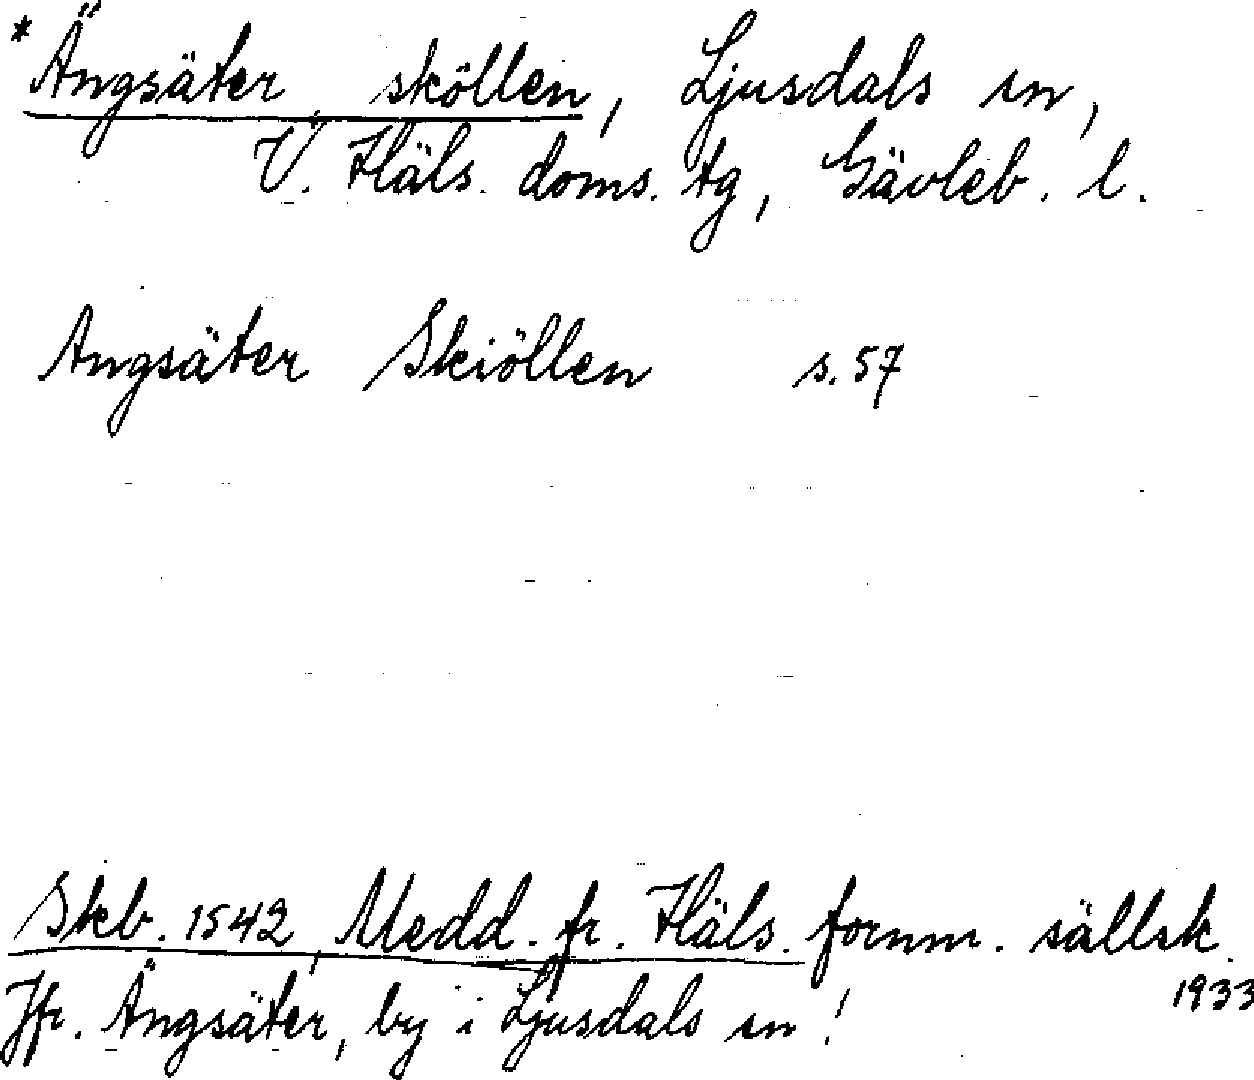 *Ängsäter, sköllen, Ljusdals sn,
V. Häls. doms. tg, Gävleb. l.
Angsäter Skiöllen s. 57
Skb. 1542, Medd. fr. Häls. fornm. sällsk. 1933
Jfr. Ängsäter, by i Ljusdals sn!